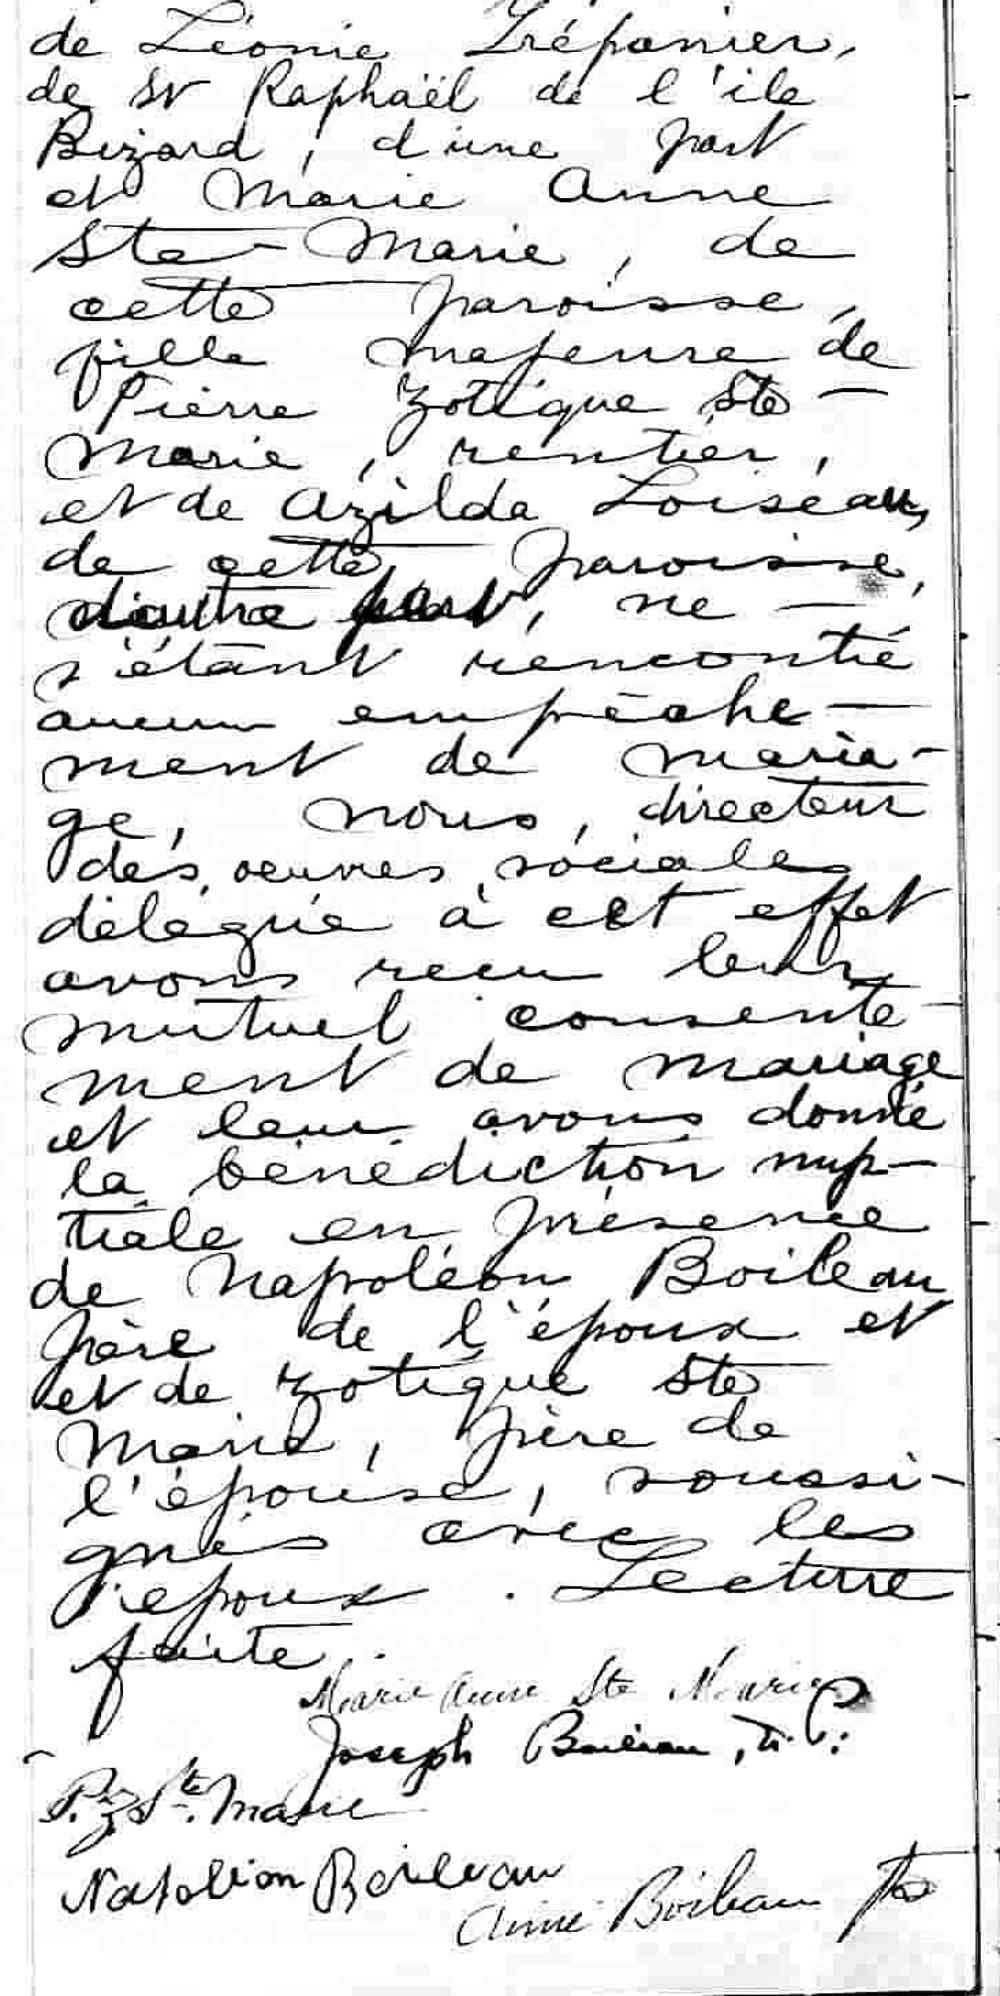 de Léonie Trépanier,
de St Raphaël de l'ile
Bizard, d'une part
et Marie Anne
Ste-Marie, de
cette paroisse,
fille majeure de
Pierre Zotique Ste-
Marie, rentier,
et de Azilda Loiseau,
de cette paroisse,
d'autre part, ne
s'étant rencontré
aucun empêche-
ment de maria-
ge, nous, directeur
des oeuvres sociales
délégué à cet effet
avons reçu leur
mutuel consente-
ment de mariage
et leur avons donné
la bénédiction nup-
tiale en présence
de Napoléon Boileau
père de l'époux et
et de Zotique Ste
Marie, père de
l'épouse, soussi-
gnés avec les
époux. Lecture
faite.
Marie Anne Ste Marie
Joseph Boileau
P. Z. Ste. Marie
Napoléon Boileau
Aimé Boileau ptre